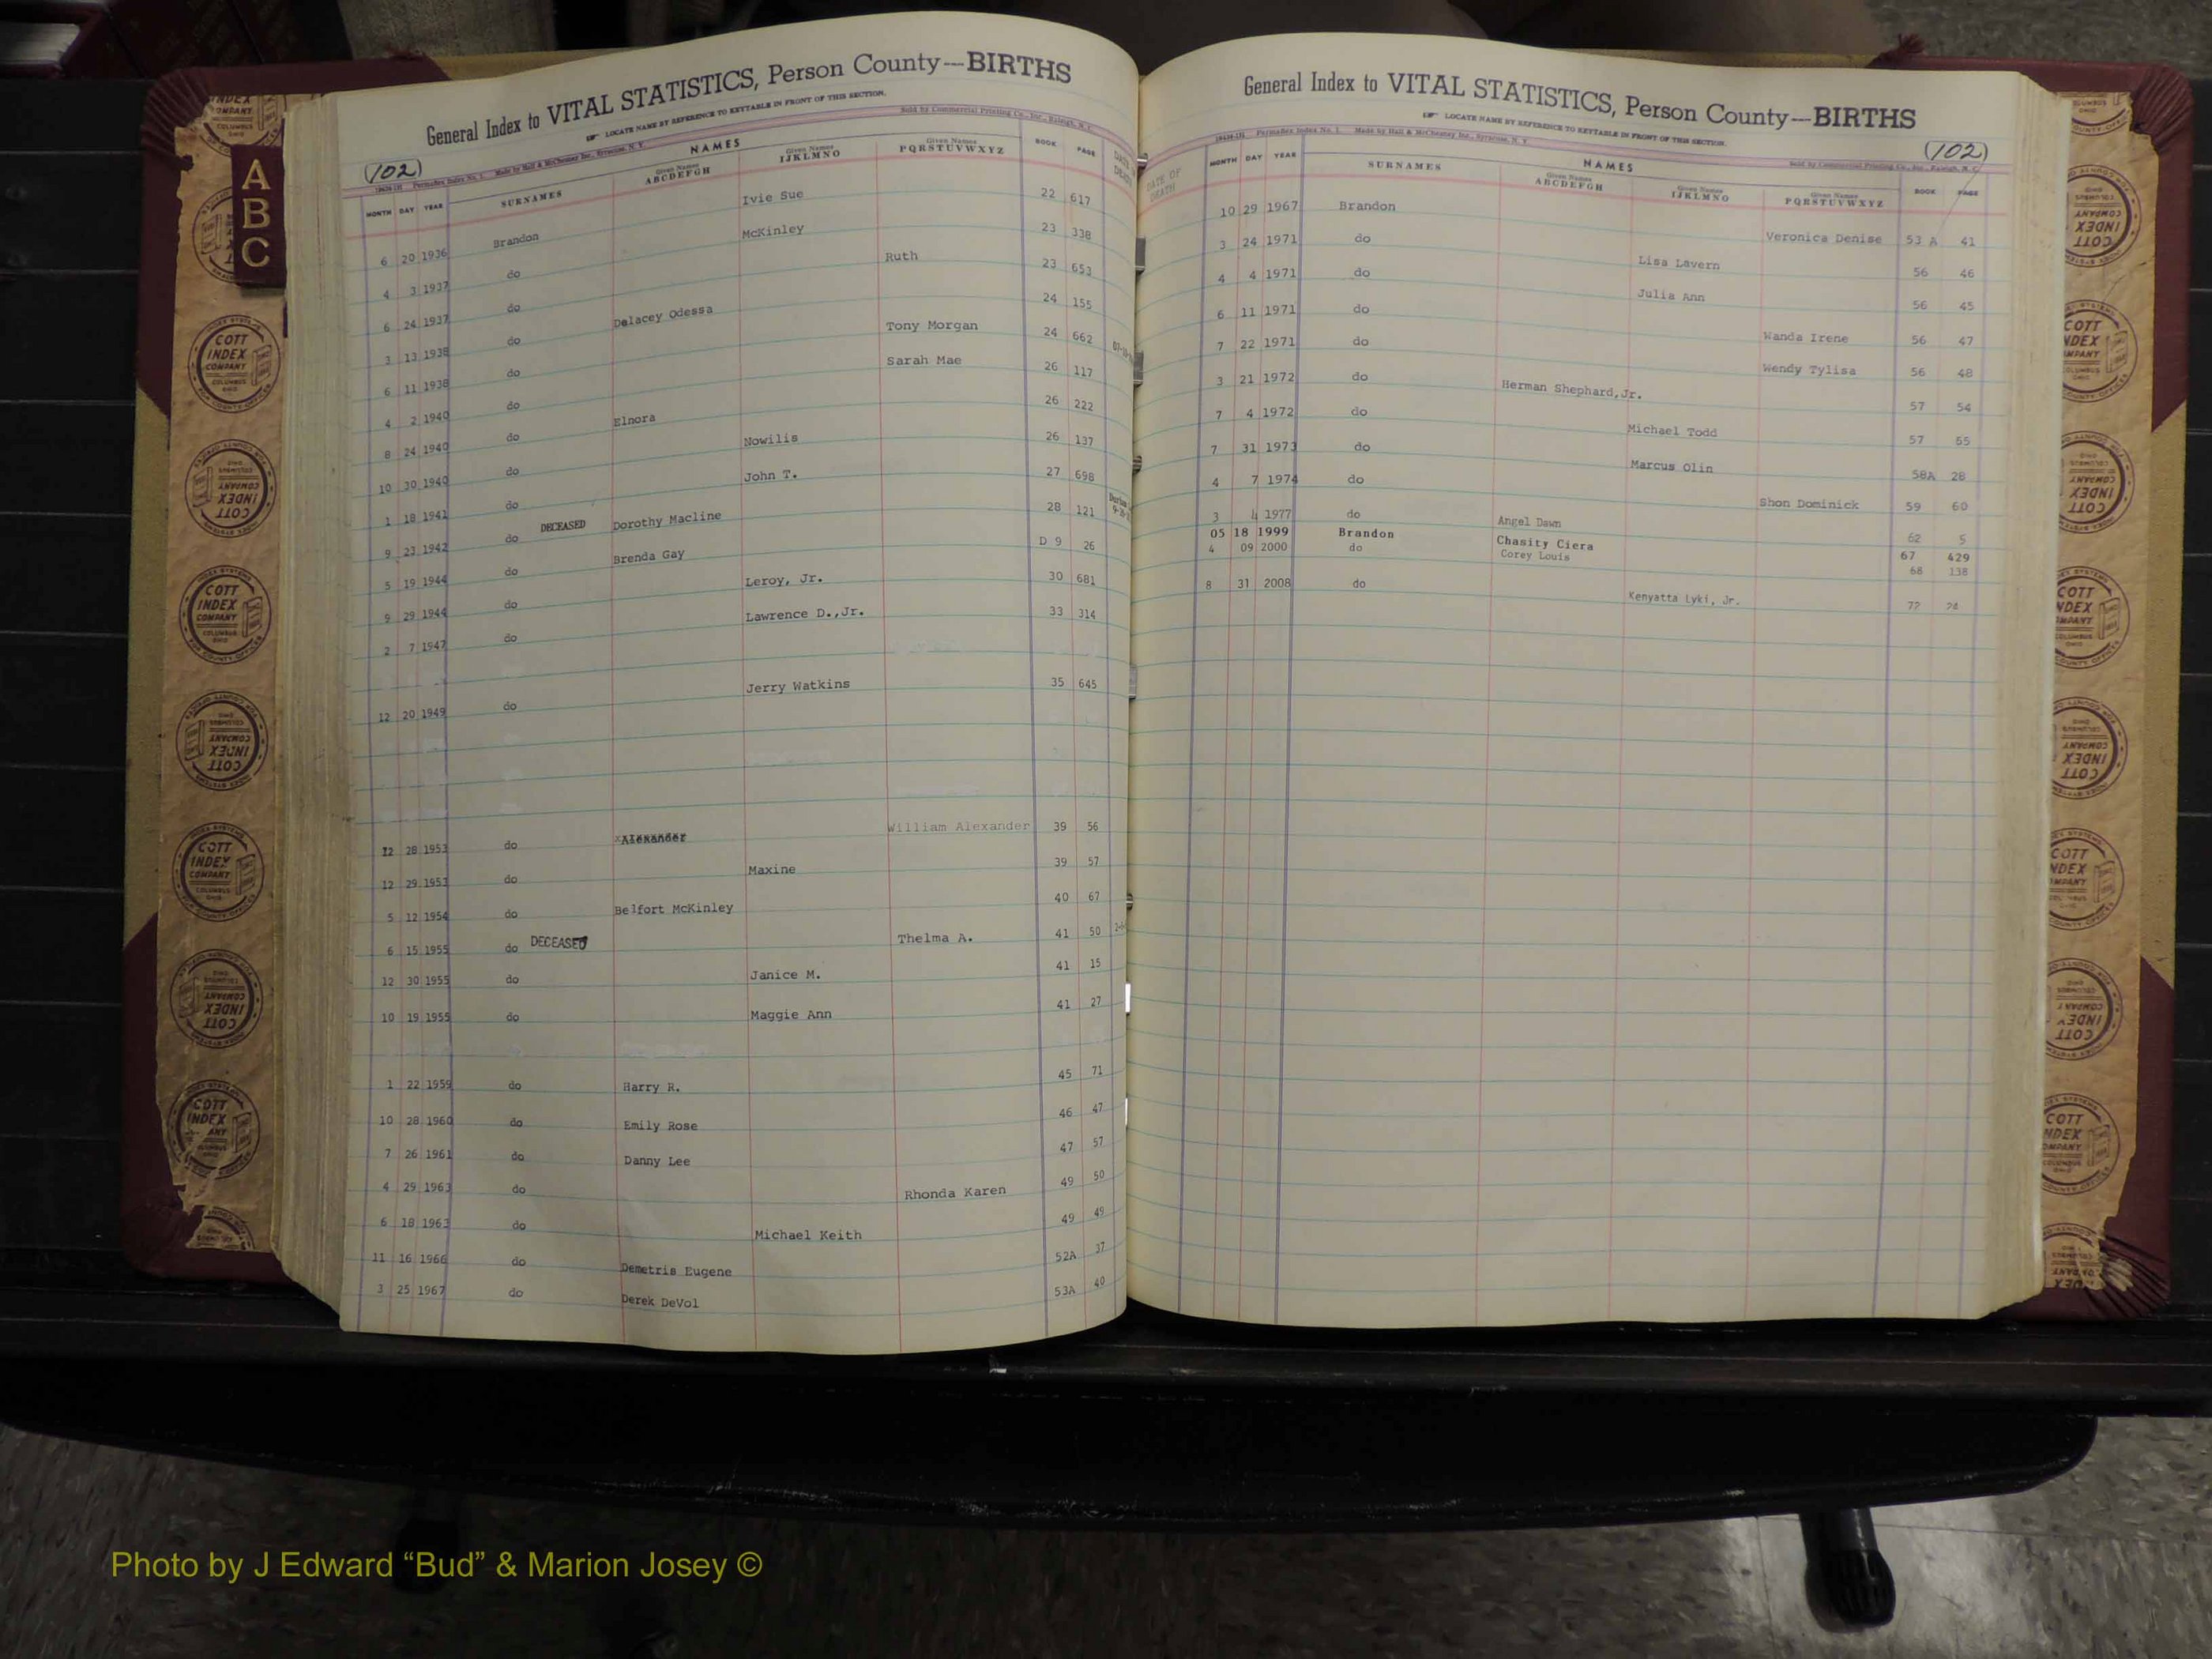 General Index to VITAL STATISTICS, Person County—BIRTHS
LOCATE NAME BY REFERENCE TO KEYTABLE IN FRONT OF THIS SECTION.
Sold by Commercial Printing Co., Inc., Raleigh, N. C.
(102)
A
B
C
MONTH DAY YEAR SURNAMES NAMES Given Names ABCDEFGH Given Names IJKLMNO Given Names PQRSTUVWXYZ BOOK PAGE DATE DEATH
6 20 1936 Brandon Ivie Sue 22 617
4 3 1937 do McKinley 23 338
6 24 1937 do Ruth 23 653
3 13 1938 do Delacey Odessa 24 155
6 11 1938 do Tony Morgan 24 662
4 2 1940 do Sarah Mae 26 117
8 24 1940 do Elnora 26 222
10 30 1940 do Nowilis 26 137
1 18 1941 do John T. 27 698
9 23 1942 do DECEASED Dorothy Macline 28 121
5 19 1944 do Brenda Gay D 9 26
9 29 1944 do Leroy, Jr. 30 681
2 7 1947 do Lawrence D.,Jr. 33 314
12 20 1949 do Jerry Watkins 35 645
12 28 1953 do Alexander William Alexander 39 56
12 29 1953 do Maxine 39 57
5 12 1954 do Belfort McKinley 40 67
6 15 1955 do DECEASED Thelma A. 41 50
12 30 1955 do Janice M. 41 15
10 19 1955 do Maggie Ann 41 27
1 22 1959 do Harry R. 45 71
10 28 1960 do Emily Rose 46 47
7 26 1961 do Danny Lee 47 57
4 29 1963 do Rhonda Karen 49 50
6 18 1963 do Michael Keith 49 49
11 16 1966 do Demetris Eugene 52A 37
3 25 1967 do Derek DeVol 53A 40
General Index to VITAL STATISTICS, Person County—BIRTHS
LOCATE NAME BY REFERENCE TO KEYTABLE IN FRONT OF THIS SECTION.
Made by Hall & McChesney Inc., Syracuse, N. Y.
Sold by Commercial Printing Co., Inc., Raleigh, N. C.
(102)
DATE OF DEATH MONTH DAY YEAR SURNAMES NAMES Given Names ABCDEFGH Given Names IJKLMNO Given Names PQRSTUVWXYZ BOOK PAGE
10 29 1967 Brandon Veronica Denise 53 A 41
3 24 1971 do Lisa Lavern 56 46
4 4 1971 do Julia Ann 56 45
6 11 1971 do Wanda Irene 56 47
7 22 1971 do Wendy Tylisa 56 48
3 21 1972 do Herman Shephard,Jr. 57 54
7 4 1972 do Michael Todd 57 55
7 31 1973 do Marcus Olin 58A 28
4 7 1974 do Shon Dominick 59 60
3 4 1977 do Angel Dawn 62 5
05 18 1999 Brandon Chasity Ciera 67 429
4 09 2000 do Corey Louis 68 138
8 31 2008 do Kenyatta Lyki, Jr. 72 24
COTT INDEX COMPANY COLUMBUS OHIO
Photo by J Edward “Bud” & Marion Josey ©